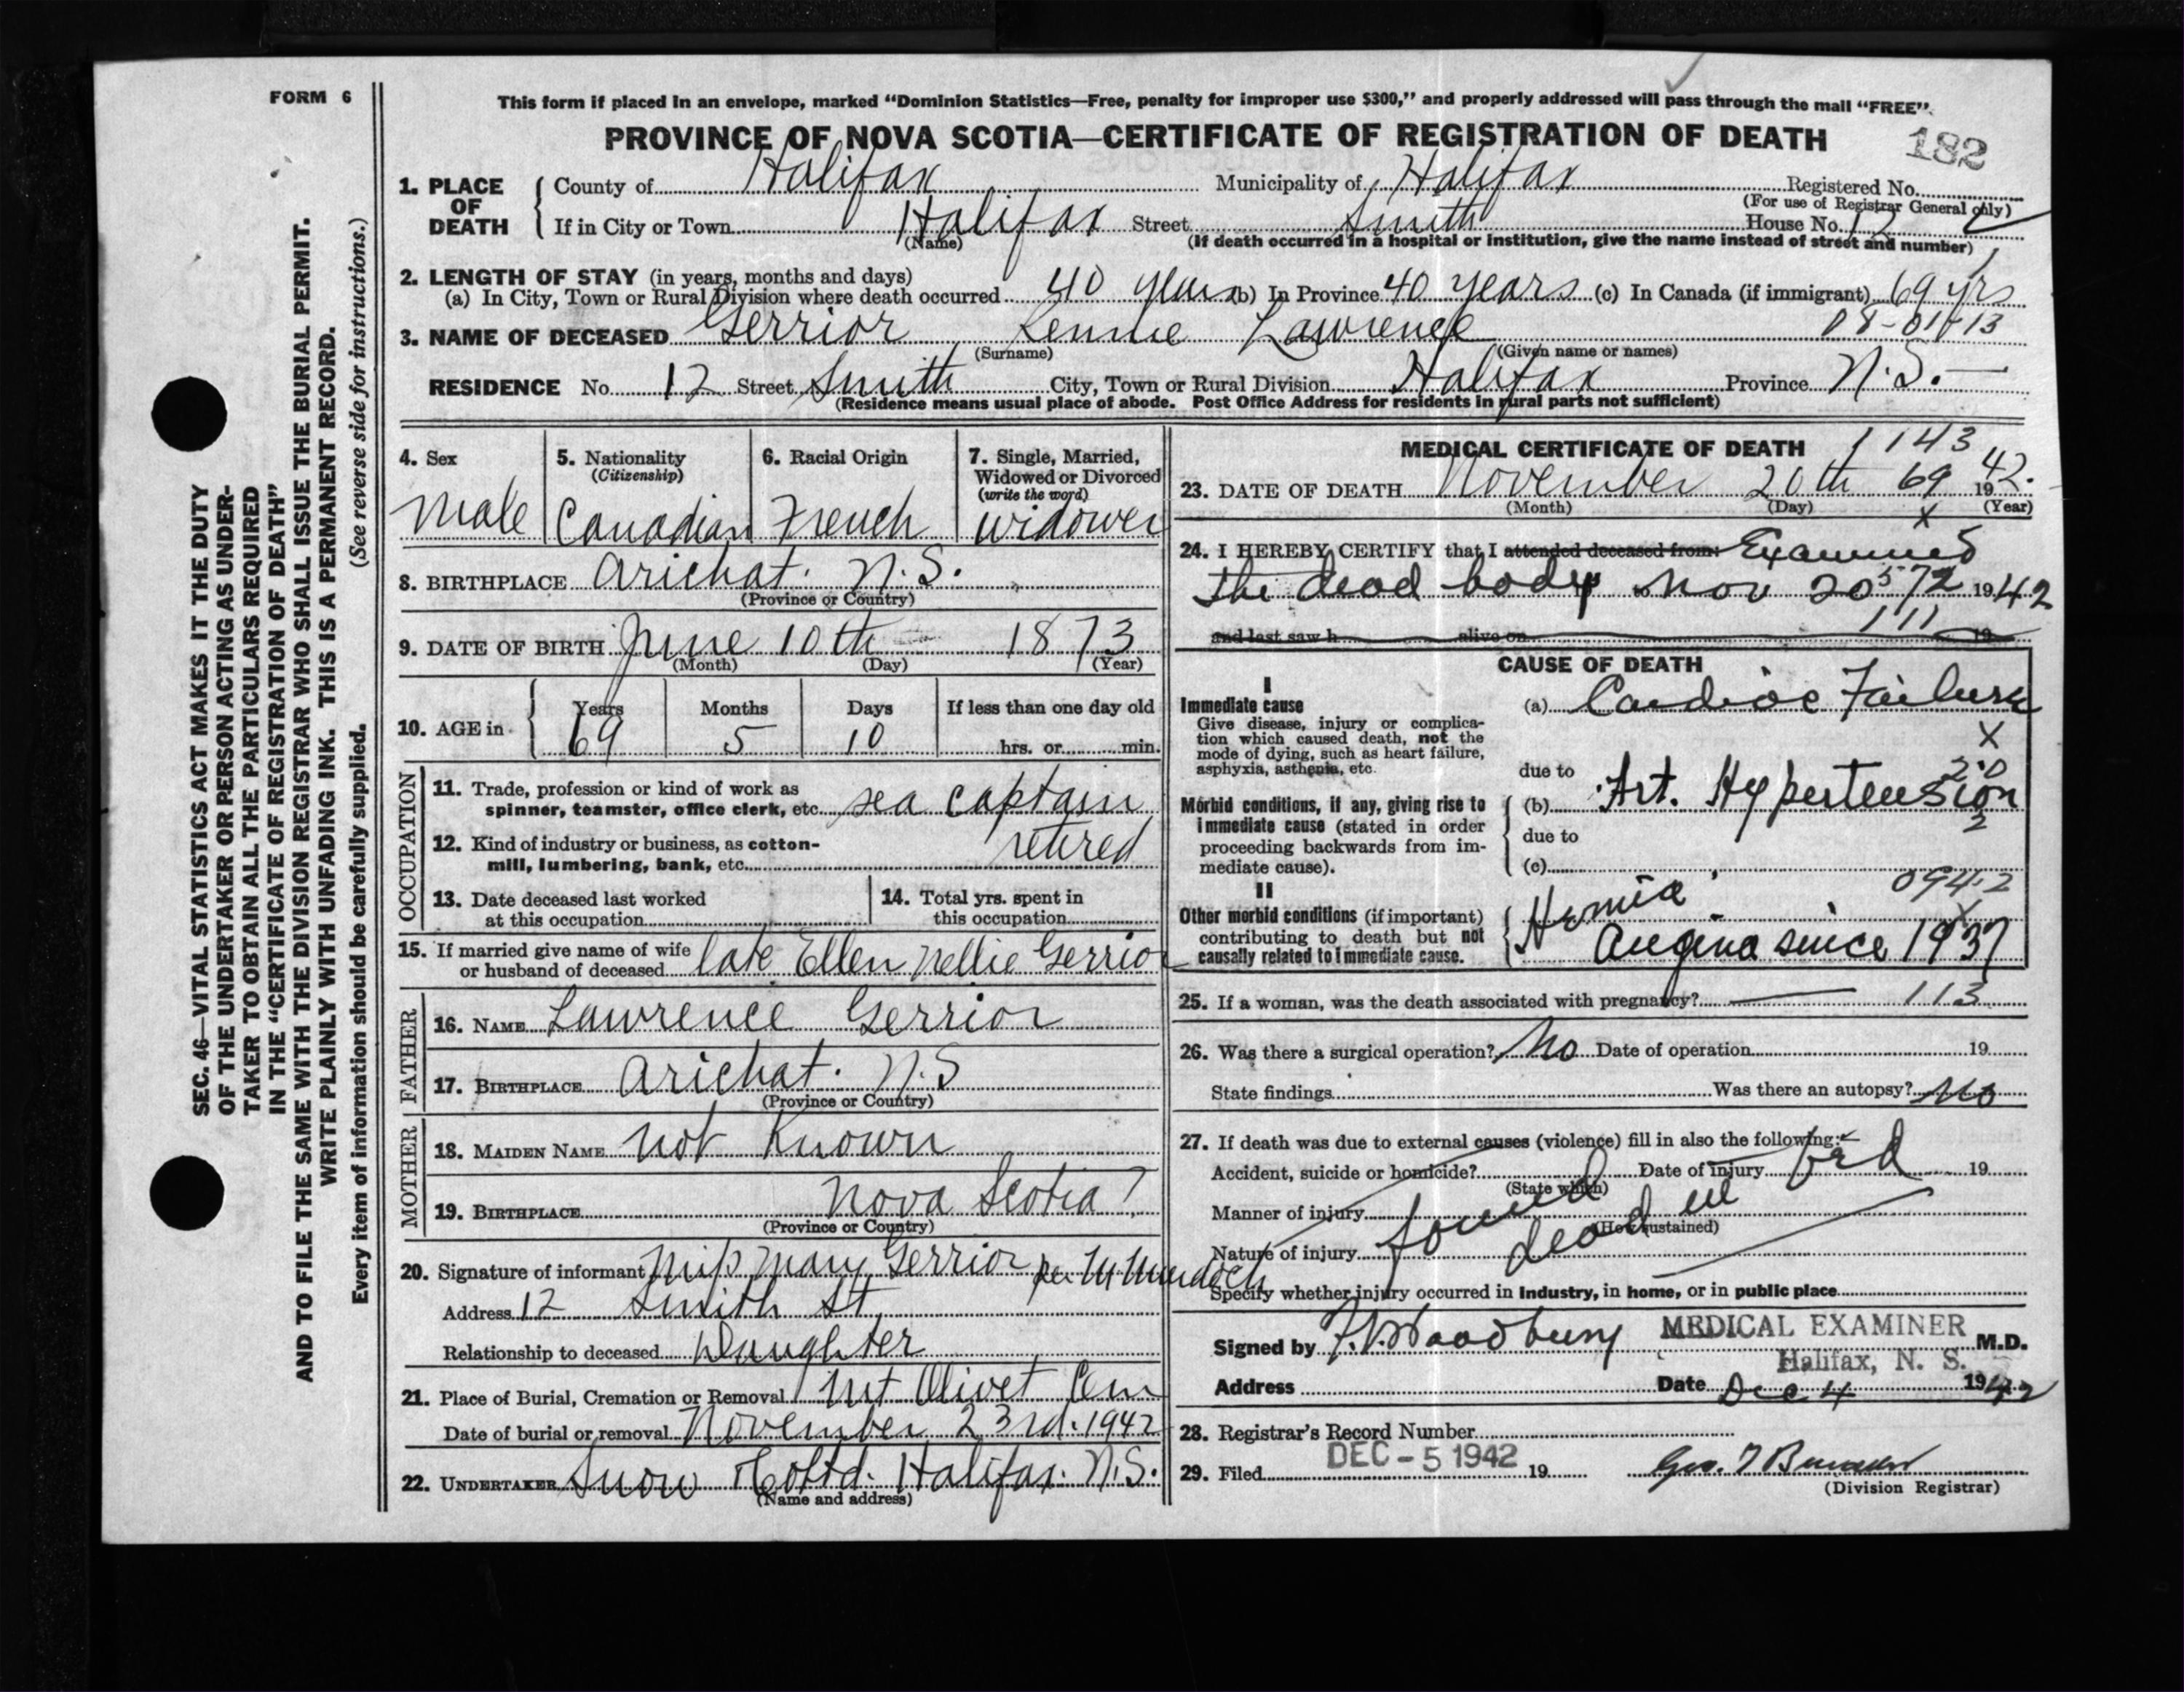 FORM 6
This form if placed in an envelope, marked “Dominion Statistics—Free, penalty for improper use $300,” and properly addressed will pass through the mail “FREE”.
PROVINCE OF NOVA SCOTIA—CERTIFICATE OF REGISTRATION OF DEATH
182
1. PLACE OF DEATH
County of Halifax Municipality of Halifax Registered No.
(For use of Registrar General only)
If in City or Town Halifax Street Smith House No. 12
(Name) (If death occurred in a hospital or institution, give the name instead of street and number)
2. LENGTH OF STAY (in years, months and days)
(a) In City, Town or Rural Division where death occurred 40 years (b) In Province 40 years (c) In Canada (if immigrant) 69 yrs
08-01-13
3. NAME OF DECEASED Gerrior Lennie Lawrence
(Surname) (Given name or names)
RESIDENCE No. 12 Street Smith City, Town or Rural Division Halifax Province N.S.
(Residence means usual place of abode. Post Office Address for residents in rural parts not sufficient)
4. Sex
Male
5. Nationality
(Citizenship)
Canadian
6. Racial Origin
French
7. Single, Married,
Widowed or Divorced
(write the word)
widower
8. BIRTHPLACE Arichat. N.S.
(Province or Country)
9. DATE OF BIRTH June 10th 1873
(Month) (Day) (Year)
10. AGE in
Years Months Days If less than one day old
69 5 10 hrs. or min.
OCCUPATION
11. Trade, profession or kind of work as
spinner, teamster, office clerk, etc. sea captain
12. Kind of industry or business, as cotton-
mill, lumbering, bank, etc. retired
13. Date deceased last worked
at this occupation
14. Total yrs. spent in
this occupation
15. If married give name of wife
or husband of deceased late Ellen Nellie Gerrior
FATHER
16. NAME Lawrence Gerrior
17. BIRTHPLACE Arichat. N.S
(Province or Country)
MOTHER
18. MAIDEN NAME not Known
19. BIRTHPLACE Nova Scotia?
(Province or Country)
20. Signature of informant Miss Mary Gerrior per M Murdoch
Address 12 Smith St
Relationship to deceased Daughter
21. Place of Burial, Cremation or Removal Mt Olivet Cem
Date of burial or removal November 23rd. 1942
22. UNDERTAKER Snow & Co Ltd. Halifax. N.S.
(Name and address)
MEDICAL CERTIFICATE OF DEATH
1143
23. DATE OF DEATH November 20th 69 1942.
(Month) (Day) (Year)
x
24. I HEREBY CERTIFY that I attended deceased from: Examined
the dead body to Nov 20 572 1942
111
and last saw h alive on 19
CAUSE OF DEATH
I
Immediate cause
Give disease, injury or complica-
tion which caused death, not the
mode of dying, such as heart failure,
asphyxia, asthenia, etc.
(a) Cardiac Failure
X
due to
20
Morbid conditions, if any, giving rise to
immediate cause (stated in order
proceeding backwards from im-
mediate cause).
(b) Art. Hypertension
2
due to
(c)
II
Other morbid conditions (if important)
contributing to death but not
causally related to immediate cause.
094.2
Hernia
Angina since 1937
25. If a woman, was the death associated with pregnancy? 113
26. Was there a surgical operation? No Date of operation 19
State findings Was there an autopsy? No
27. If death was due to external causes (violence) fill in also the following:
Accident, suicide or homicide? Date of injury 19
(State which)
Manner of injury
(How sustained)
Nature of injury
found dead in bed
Specify whether injury occurred in industry, in home, or in public place
Signed by F.V. Woodbury MEDICAL EXAMINER M.D.
Halifax, N. S.
Address Date Dec 4 1942
28. Registrar's Record Number
29. Filed DEC - 5 1942 19
(Division Registrar)
SEC. 46—VITAL STATISTICS ACT MAKES IT THE DUTY
OF THE UNDERTAKER OR PERSON ACTING AS UNDER-
TAKER TO OBTAIN ALL THE PARTICULARS REQUIRED
IN THE “CERTIFICATE OF REGISTRATION OF DEATH”
AND TO FILE THE SAME WITH THE DIVISION REGISTRAR WHO SHALL ISSUE THE BURIAL PERMIT.
WRITE PLAINLY WITH UNFADING INK. THIS IS A PERMANENT RECORD.
Every item of information should be carefully supplied. (See reverse side for instructions.)